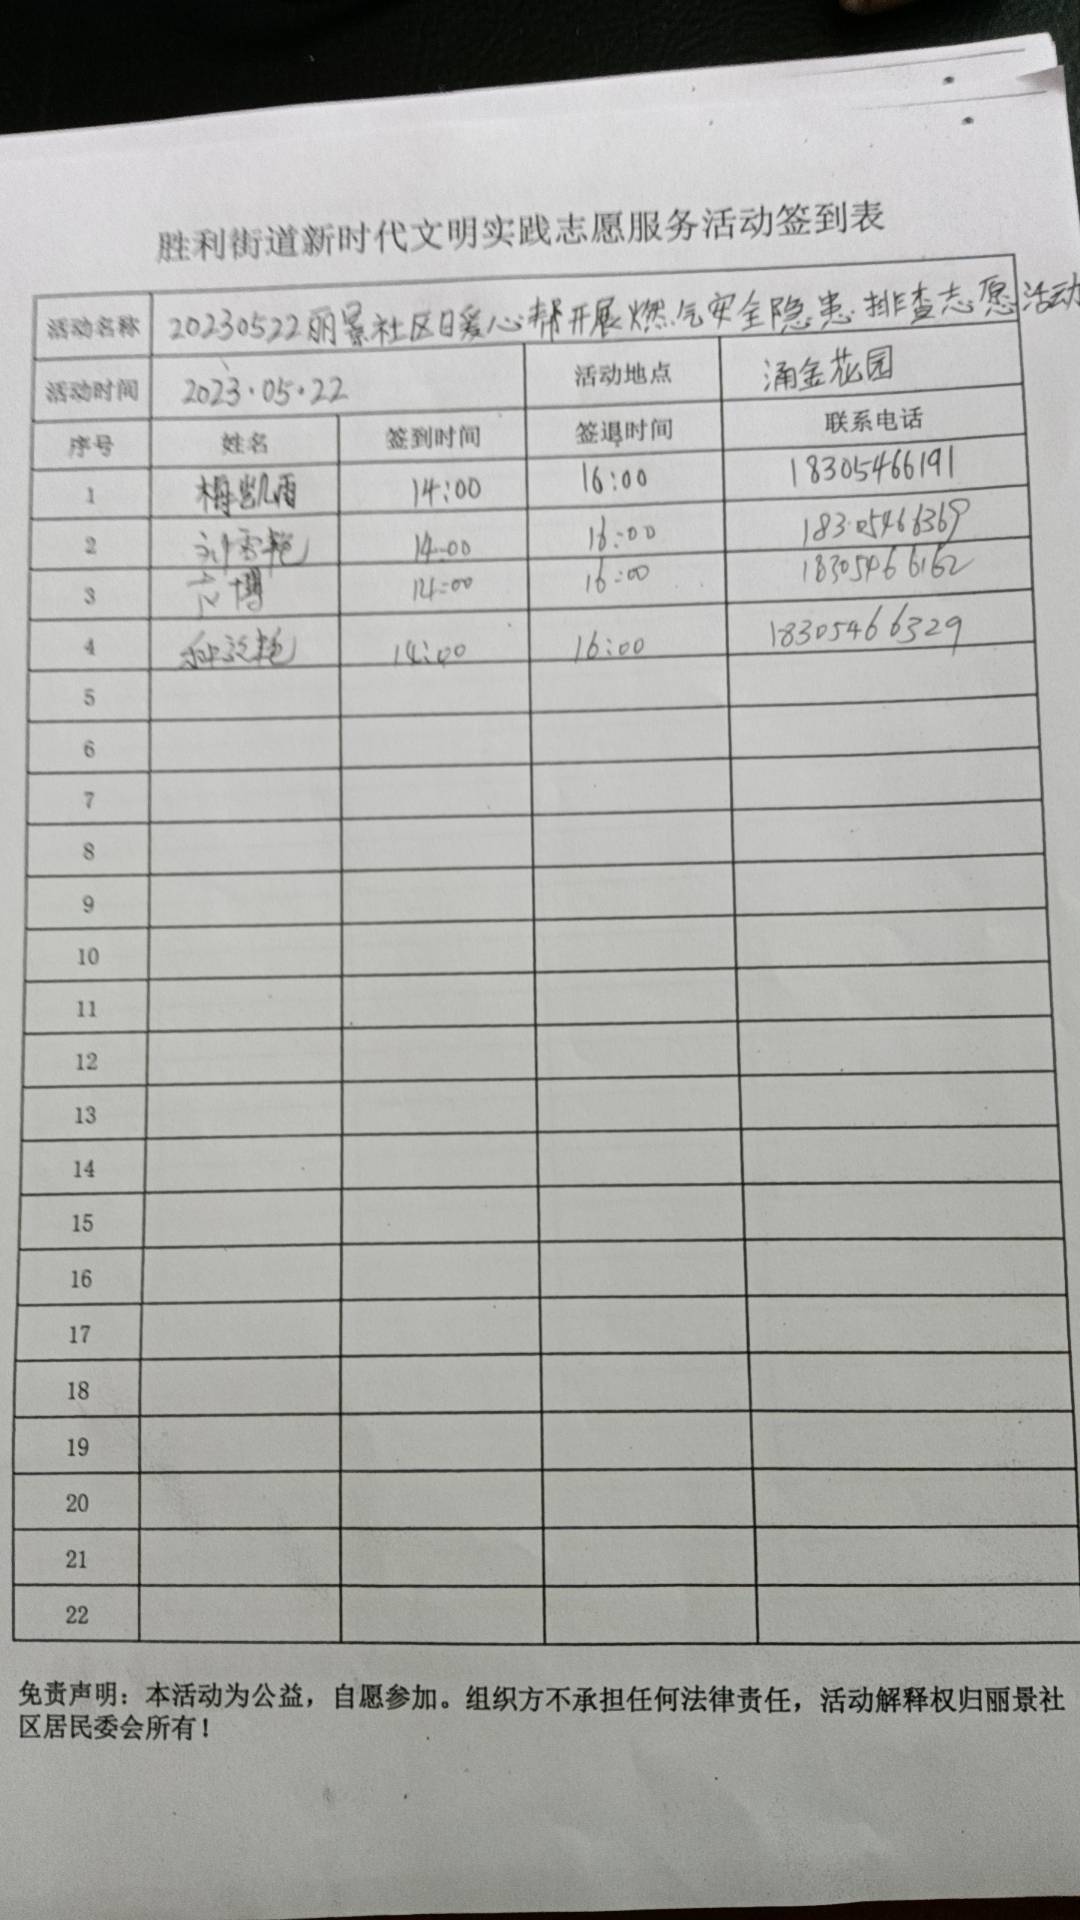 胜利街道新时代文明实践志愿服务活动签到表
活动名称 20230522丽景社区暖心帮开展燃气安全隐患排查志愿活动
活动时间 2023.05.22 活动地点 涌金花园
序号 姓名 签到时间 签退时间 联系电话
1 梅凯雨 14:00 16:00 18305466191
2 刘雪艳 14:00 16:00 18305466369
3 博 14:00 16:00 18305466162
4 艳 14:00 16:00 18305466329
5
6
7
8
9
10
11
12
13
14
15
16
17
18
19
20
21
22
免责声明：本活动为公益，自愿参加。组织方不承担任何法律责任，活动解释权归丽景社
区居民委会所有！